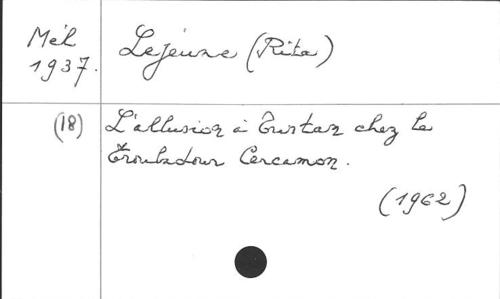 Mél
1937.
Lejeune (Rita)
(18)
L'allusion à Tristan chez le
Troubadour Cercamon.
(1962)